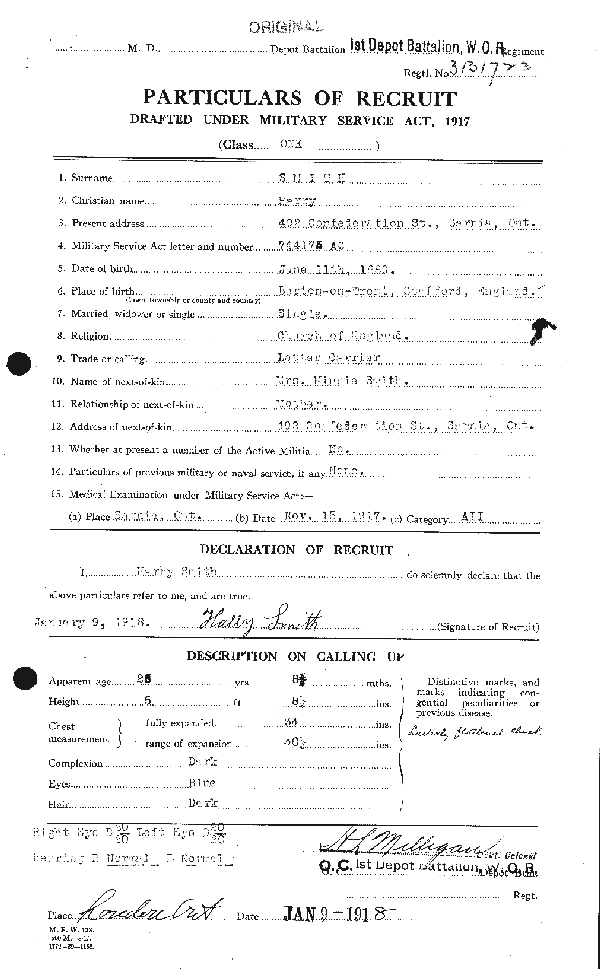 ORIGINAL
M. D., Depot Battalion 1st Depot Battalion, W. O. R. Regiment
Regtl. No. 3131723
PARTICULARS OF RECRUIT
DRAFTED UNDER MILITARY SERVICE ACT, 1917
(Class ONE )
1. Surname SMITH
2. Christian name Harry
3. Present address 492 Confederation St., Sarnia, Ont.
4. Military Service Act letter and number AC
5. Date of birth June 11th,
6. Place of birth Burton-on-Trent, Stafford, England.
(Town, township or county and country)
7. Married, widower or single Single.
8. Religion Church of England.
9. Trade or calling Letter Carrier
10. Name of next-of-kin Mrs. Minnie Smith.
11. Relationship of next-of-kin Mother.
12. Address of next-of-kin 492 Confederation St., Sarnia, Ont.
13. Whether at present a member of the Active Militia No.
14. Particulars of previous military or naval service, if any None.
15. Medical Examination under Military Service Act:—
(a) Place Sarnia, Ont. (b) Date Nov. 15, 1917. (c) Category AII
DECLARATION OF RECRUIT
I, Harry Smith do solemnly declare that the
above particulars refer to me, and are true.
January 9, 1918. Harry Smith (Signature of Recruit)
DESCRIPTION ON CALLING UP
Apparent age yrs mths.
Height 5 ft 8½ ins.
Chest measurement fully expanded ins.
range of expansion ins.
Complexion Dark
Eyes Blue
Hair Dark
Distinctive marks, and
marks indicating con-
genital peculiarities or
previous disease.
Right Eye D 20/20 Left Eye D 20/20
Hearing R Normal L Normal
H L Milligan
Lieut. Colonel
O.C. 1st Depot Battalion, W. O. R.
Depot Battn
Regt.
Place London Ont Date JAN 9 - 1918
M. F. W.